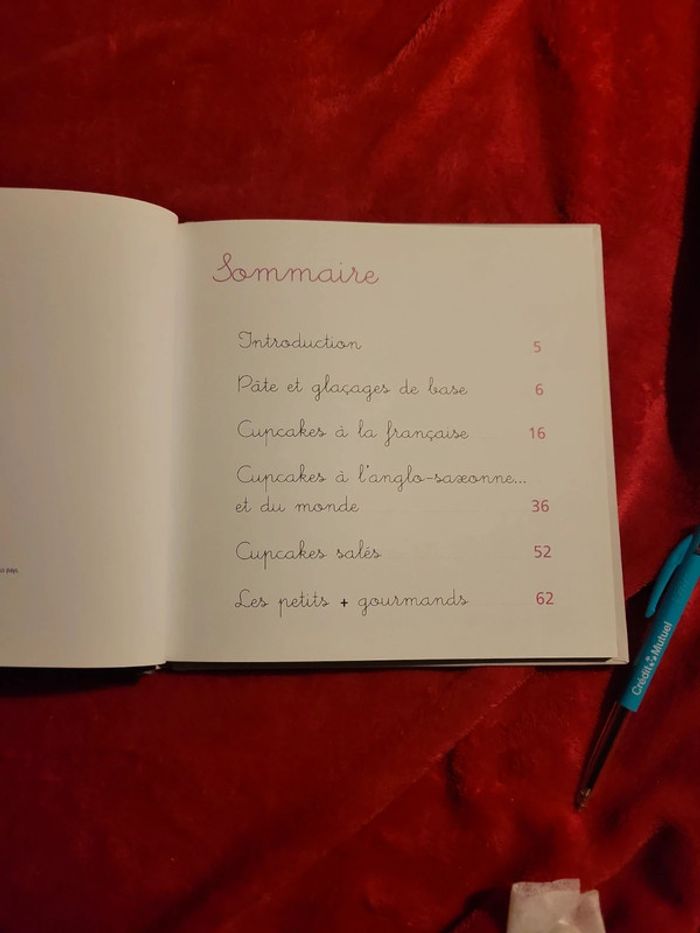 Sommaire
Introduction 5
Pâte et glaçages de base 6
Cupcakes à la française 16
Cupcakes à l'anglo-saxonne...
et du monde 36
Cupcakes salés 52
Les petits + gourmands 62
pays.
Crédit Mutuel